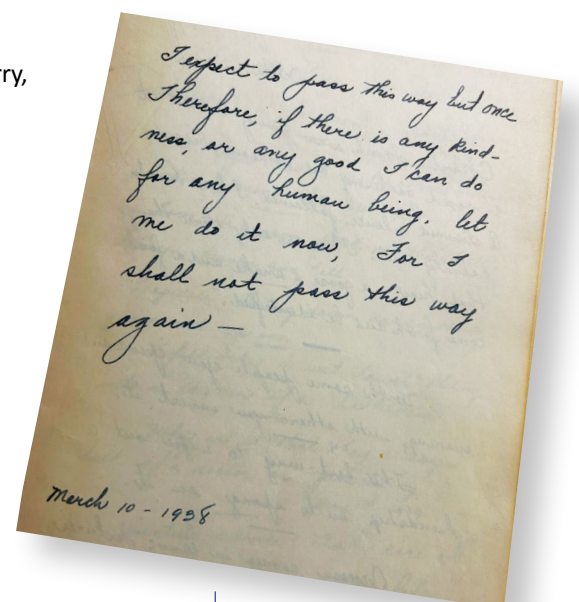 rry,
I expect to pass this way but once
Therefore, if there is any kind-
ness, or any good I can do
for any human being. let
me do it now, For I
shall not pass this way
again —
March 10 - 1938